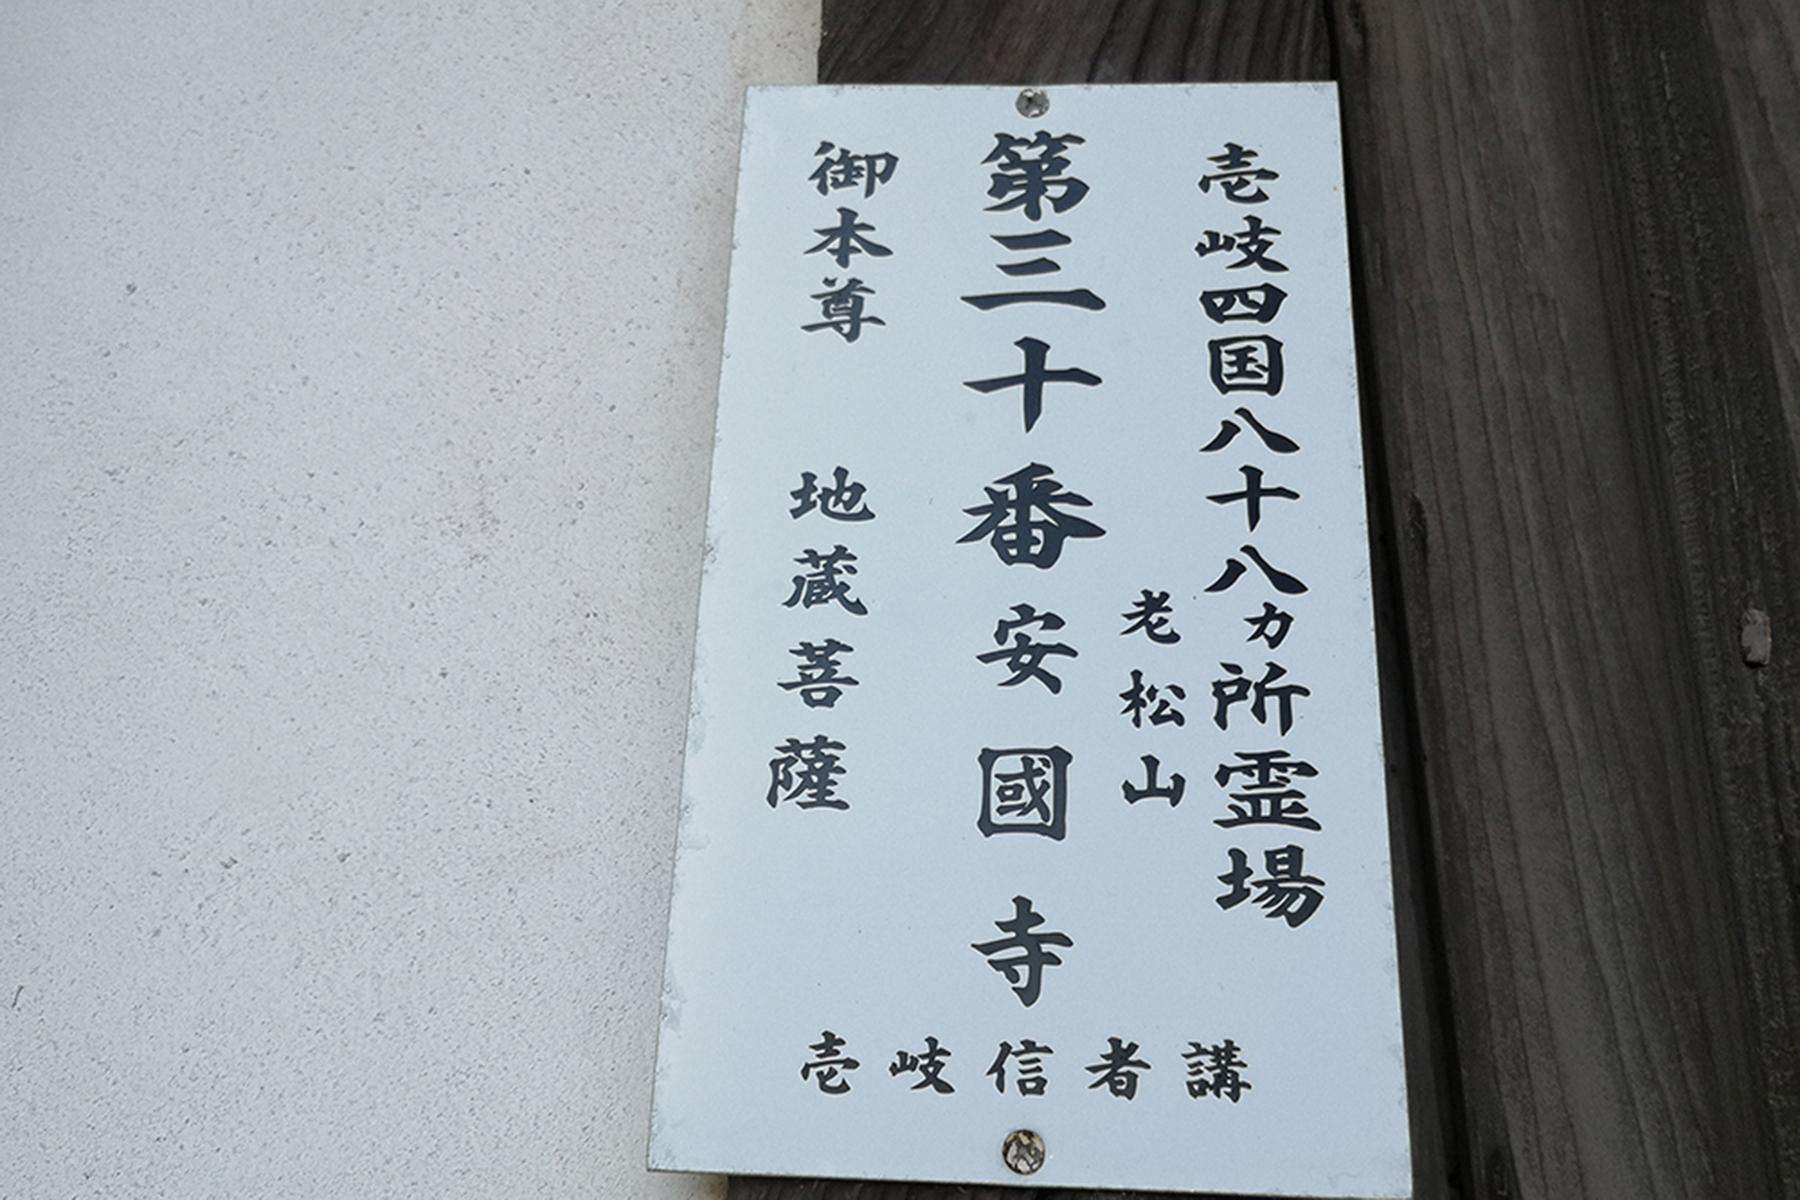 壱岐四国八十八カ所霊場
老松山
第三十番安國寺
御本尊 地蔵菩薩
壱岐信者講